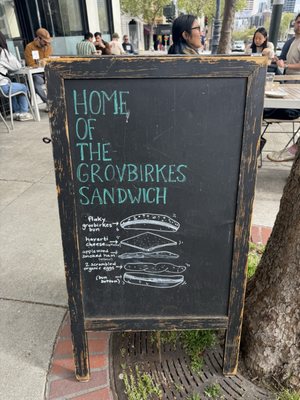 HOME
OF
THE
GROVBIRKES
SANDWICH
flaky
grovbirkes
bun
havarti
cheese
applewood
smoked ham
2 scrambled
organic eggs
(bun
bottom)